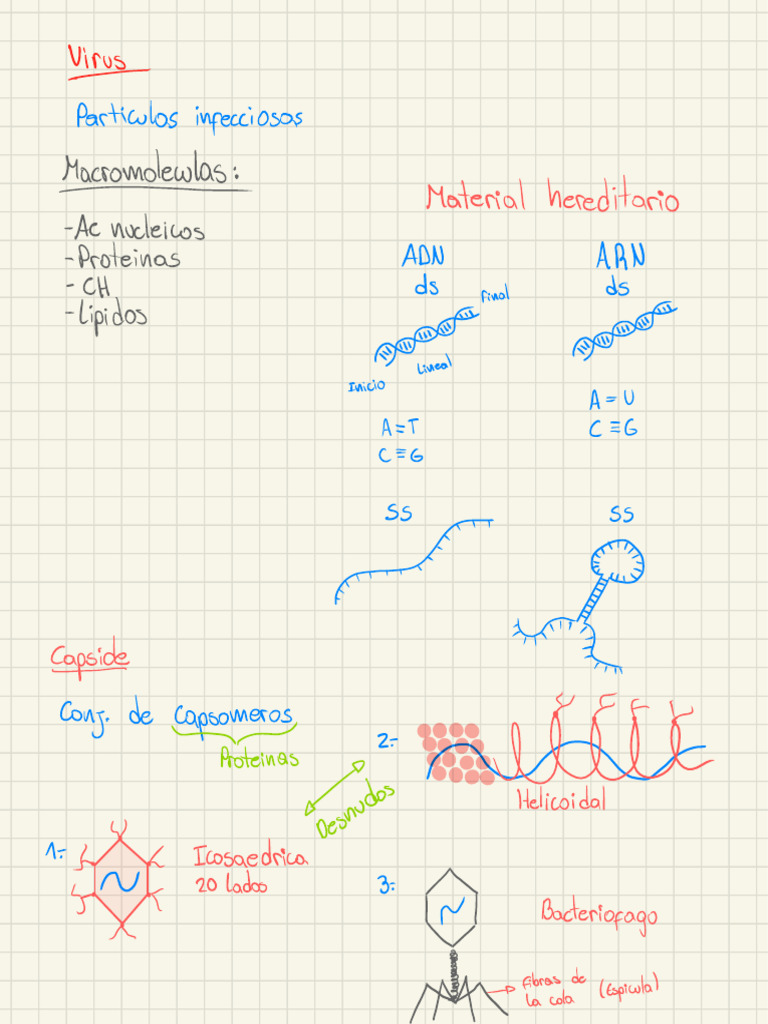 Virus
Particulas infecciosas
Macromoleculas:
-Ac nucleicos
-Proteinas
- CH
-Lipidos
Material hereditario
ADN
ds
final
Lineal
Inicio
A=T
C≡G
ARN
ds
A=U
C≡G
SS
SS
Capside
Conj. de capsomeros
Proteinas
Desnudos
1:-
Icosaedrica
20 lados
2:-
Helicoidal
3:-
Bacteriofago
Fibras de
la cola (Espicula)